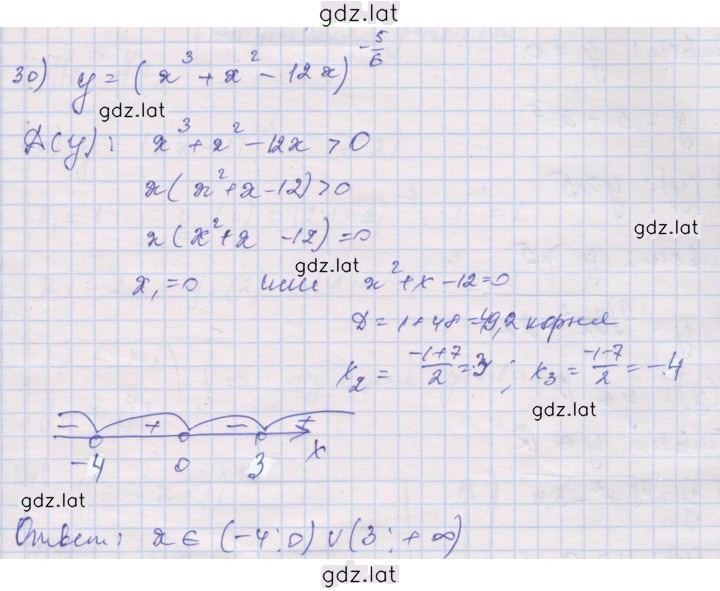 gdz.lat
30) y = (x³ + x² - 12x)^(-5/6)
gdz.lat
D(y): x³ + x² - 12x > 0
x(x² + x - 12) > 0
gdz.lat
x(x² + x - 12) = 0
gdz.lat
x₁ = 0 или x² + x - 12 = 0
D = 1 + 48 = 49, 2 корня
x₂ = (-1+7)/2 = 3; x₃ = (-1-7)/2 = -4
gdz.lat
- + - +
-4 0 3 x
gdz.lat
Ответ: x ∈ (-4; 0) ∪ (3; +∞)
gdz.lat